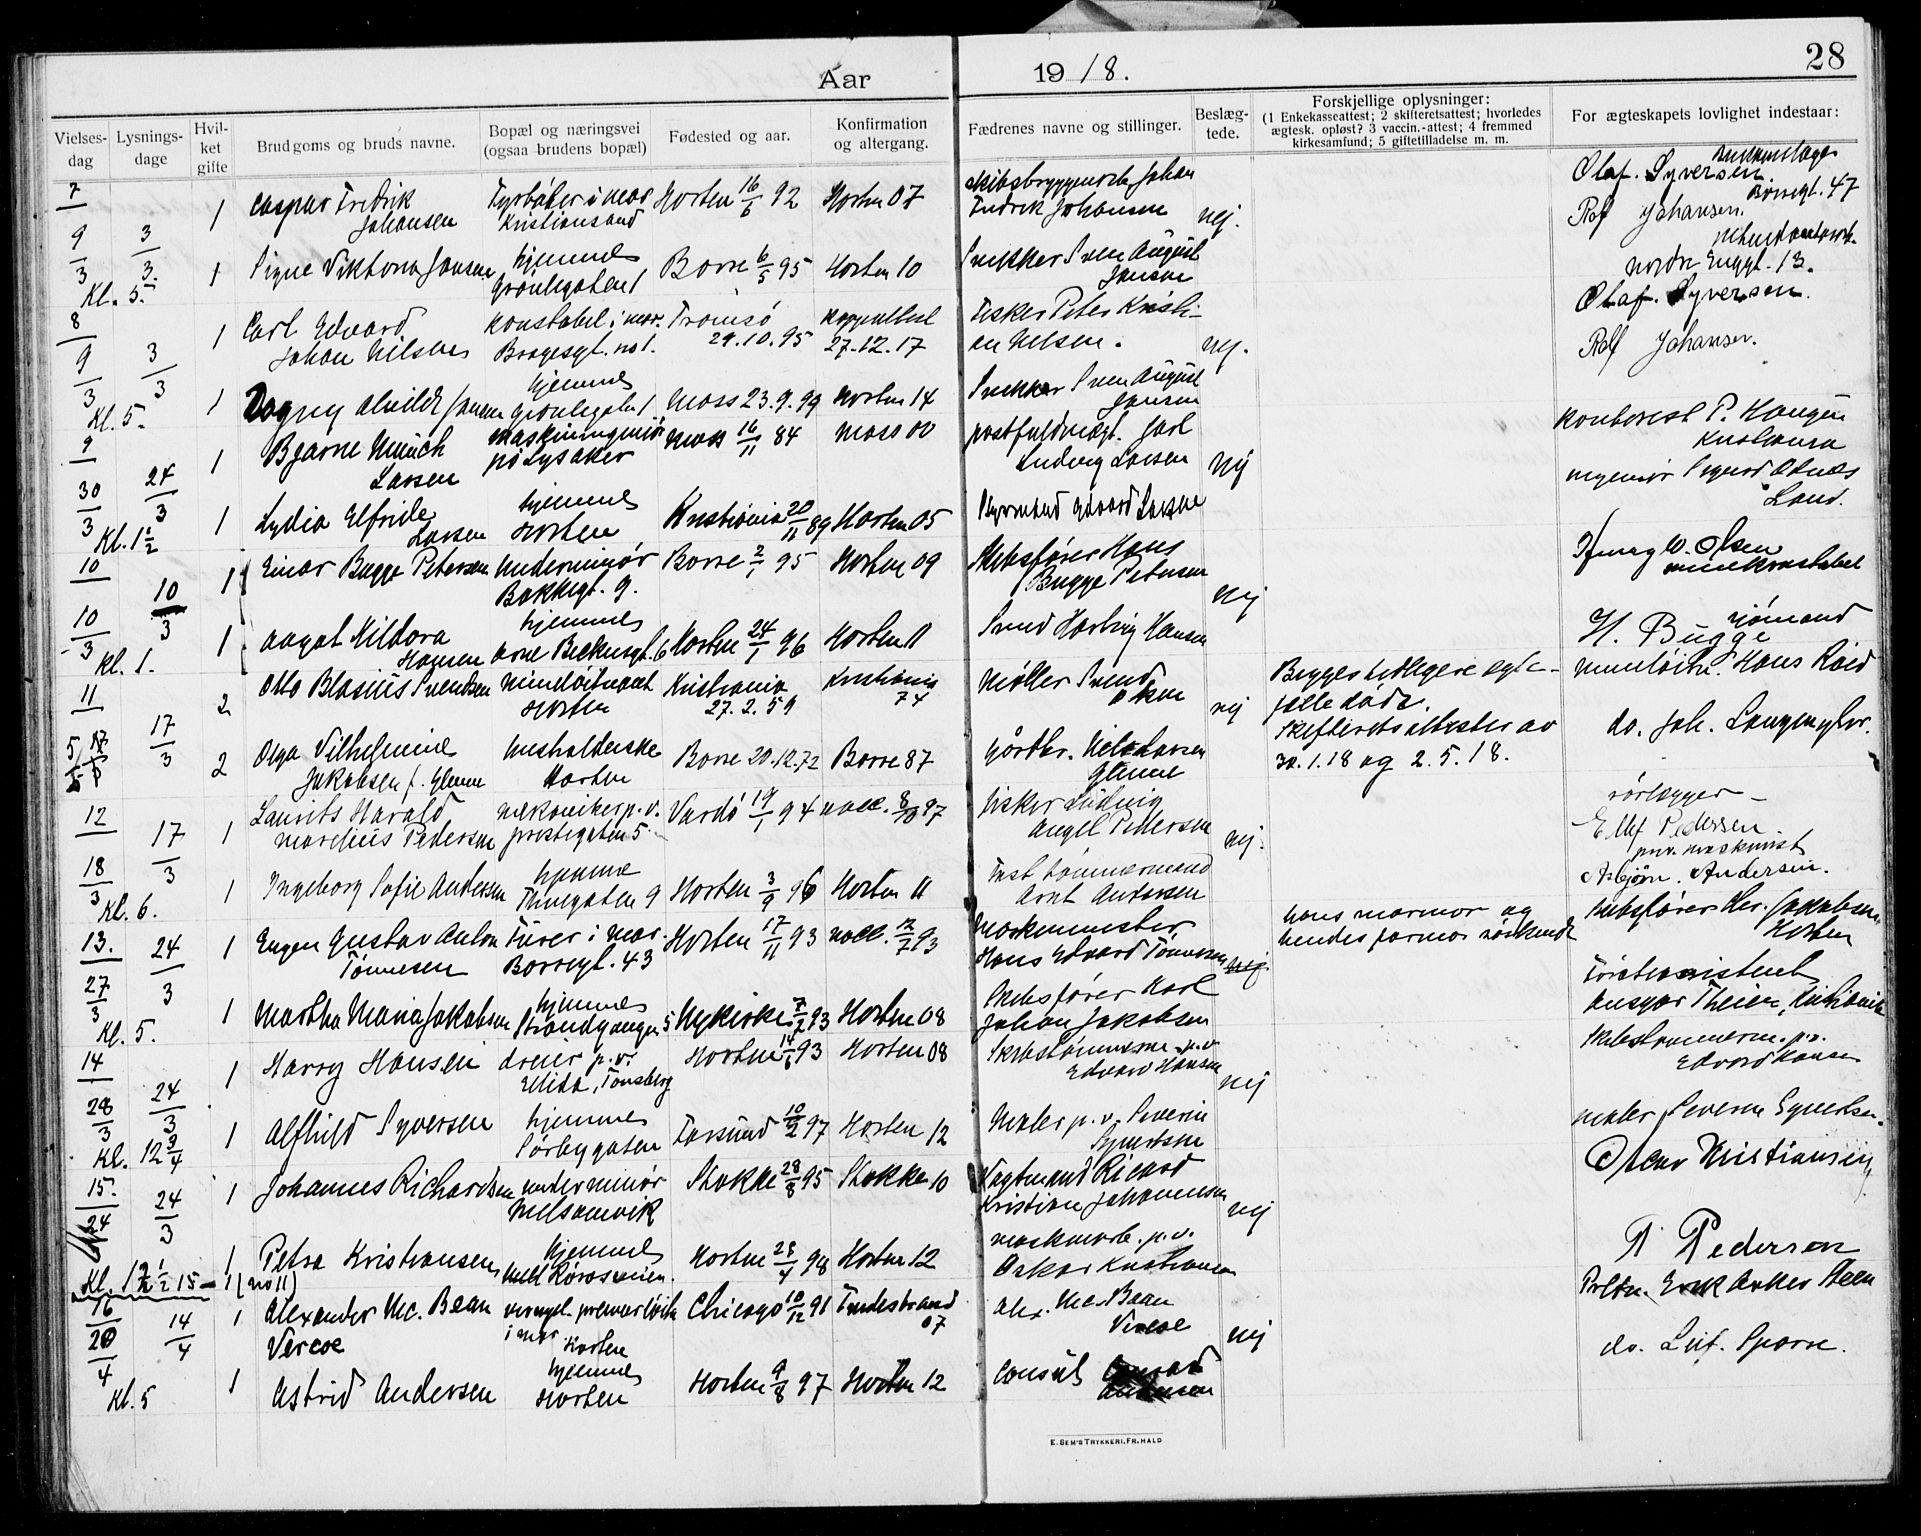 Aar
19 18.
28
Vielses-dag
Lysnings-dage
Hvil-ket gifte
Brudgoms og bruds navne.
Bopæl og næringsvei (ogsaa brudens bopæl)
Fødested og aar.
Konfirmation og altergang.
Fædrenes navne og stillinger.
Beslæg-tede.
Forskjellige oplysninger:
(1 Enkekasseattest; 2 skifteretsattest; hvorledes
ægtesk. opløst? 3 vaccin.-attest; 4 fremmed
kirkesamfund; 5 giftetilladelse m. m.
For ægteskapets lovlighet indestaar:
7
1 Caspar Fredrik Johansen Fyrbøter i mar. Kristiansand Horten 16/6 92 Horten 07 Johan Fredrik Johansen nej. Olaf. Syversen Rolf Johansen. Borregt. 47
9/3 3/3. Kl. 5. 1 Signe Viktoria Jansen hjemme Grønligaten 1 Borre 6/5 95 Horten 10 Snekker Sven August Jansen Nordre Enggt. 13.
8
9/3 3/3 1 Carl Edvard Johan Nilsen Konstabel i mar. Bragesgt. no 1. Tromsø 29.10.95 27.12.17 Fisker Peter Kristian Nelsen. nej. Olaf. Syversen. Rolf Johansen.
Kl. 5. 1 Dagny Alvilde Jansen hjemme Grønligaten 1 Moss 23.9.99 Horten 14 Snekker Sven August Jansen
9
30/3 24/3 1 Bjarne Münch Larsen maskiningeniør på Lysaker Moss 16/11 84 Moss 00 postfuldmægt. Jarl Ludvig Larsen nej Kontorist P. Haugen Kristiania
Kl. 1 1/2 1 Lydia Elfride Larsen hjemme Horten Kristiania 20/11 89 Horten 05 Styrmand Edvard Larsen ingeniør Sigurd Land.
10
10/3 10/3 1 Einar Bugge Petersen Underminør Bakkegt. 9. Borre 2/1 95 Horten 09 Skibsfører Hans Bugge Petersen nej W. Olsen minekonstabel
Kl. 1. 1 Aagot Hildora Hansen hjemme Arne Bechusgt. 6 Horten 24/1 96 Horten 11 Hansen H. Bugge sjømand
11
17/3 2 Otto Blasius Svendsen Mineløitnant Horten Kristiania 27.2.59 Kristiania 74 Møller Svend Olsen nej Begges tidligere egtefelle døde. mineløitn. Hans Røed
2 Olga Vilhelmine Jakobsen f. Glenne husholderske Horten Borre 20.12.72 Borre 87 Gårdbr. Nils Larsen Glenne Skifteretsattester av 30.1.18 og 2.5.18. do. Joh. Langmyhr.
12
18/3 17/3 1 Laurits Harald Marelius Pedersen mekaniker p. v. prestegaten 5. Vardø 19/1 94 vacc. Fisker Ludvig Angel Pedersen nej. rørlægger Ellef Pedersen
Kl. 6. 1 Ingeborg Sofie Andersen hjemme Thuegaten 9 Horten 3/9 96 Horten 11 Fast tømmermand Arnt Andersen priv. maskinist Asbjørn. Andersen.
13.
27/3 24/3 1 Eugen Gustav Anton Tønnesen Furer i mar. Borregt. 43 Horten 17/11 93 vacc. 12/7 93 Maskinmester Hans Edvard Tønnesen nej. hans mormor og hendes farmor søskende Skibsfører Her. Jakobsen Horten
Kl. 5. 1 Martha Maria Jakobsen hjemme Strandgangen 5 Nykirke 7/2 93 Horten 08 Skibsfører Karl Johan Jakobsen Ansgar Theien, Kristiania
14
28/3 24/3 1 Harry Hansen dreier p. v. Elida, Tønsberg Horten 14/6 93 Horten 08 Skibstømmerm. p. v. Edvard Hansen nej Skibstømmerm. p. v. Edvard Hansen
Kl. 12 3/4 1 Alfhild Syversen hjemme Sørbygaten Farsund 10/2 97 Horten 12 Maler p. v. Severin Syvertsen maler Severin Syvertsen.
15.
24 24/3 1 Johannes Richardsen underminør Melsomvik Stokke 28/8 95 Stokke 10 Vagtmand Rikard Kristian Johannesen nej Oscar Kristiansen
Kl. 12 1/2 15 - 1 (no 11) 1 Petra Kristiansen hjemme Horten 28/4 98 Horten 12 maskinarb. p. v. Oskar Kristiansen Pedersen
16
20/4 14/4 1 Alexander Mc. Bean Vercoe premierløitn. i mar. Horten Chicago 10/12 91 07 Alex. Mc. Bean Vercoe nej Prltn. Erik Anker Steen
Kl. 5 1 Astrid Andersen hjemme Horten Horten 9/8 97 Horten 12 Consul Andersen do. Leif. Sporn.
E. SEM'S TRYKKERI. FR. HALD